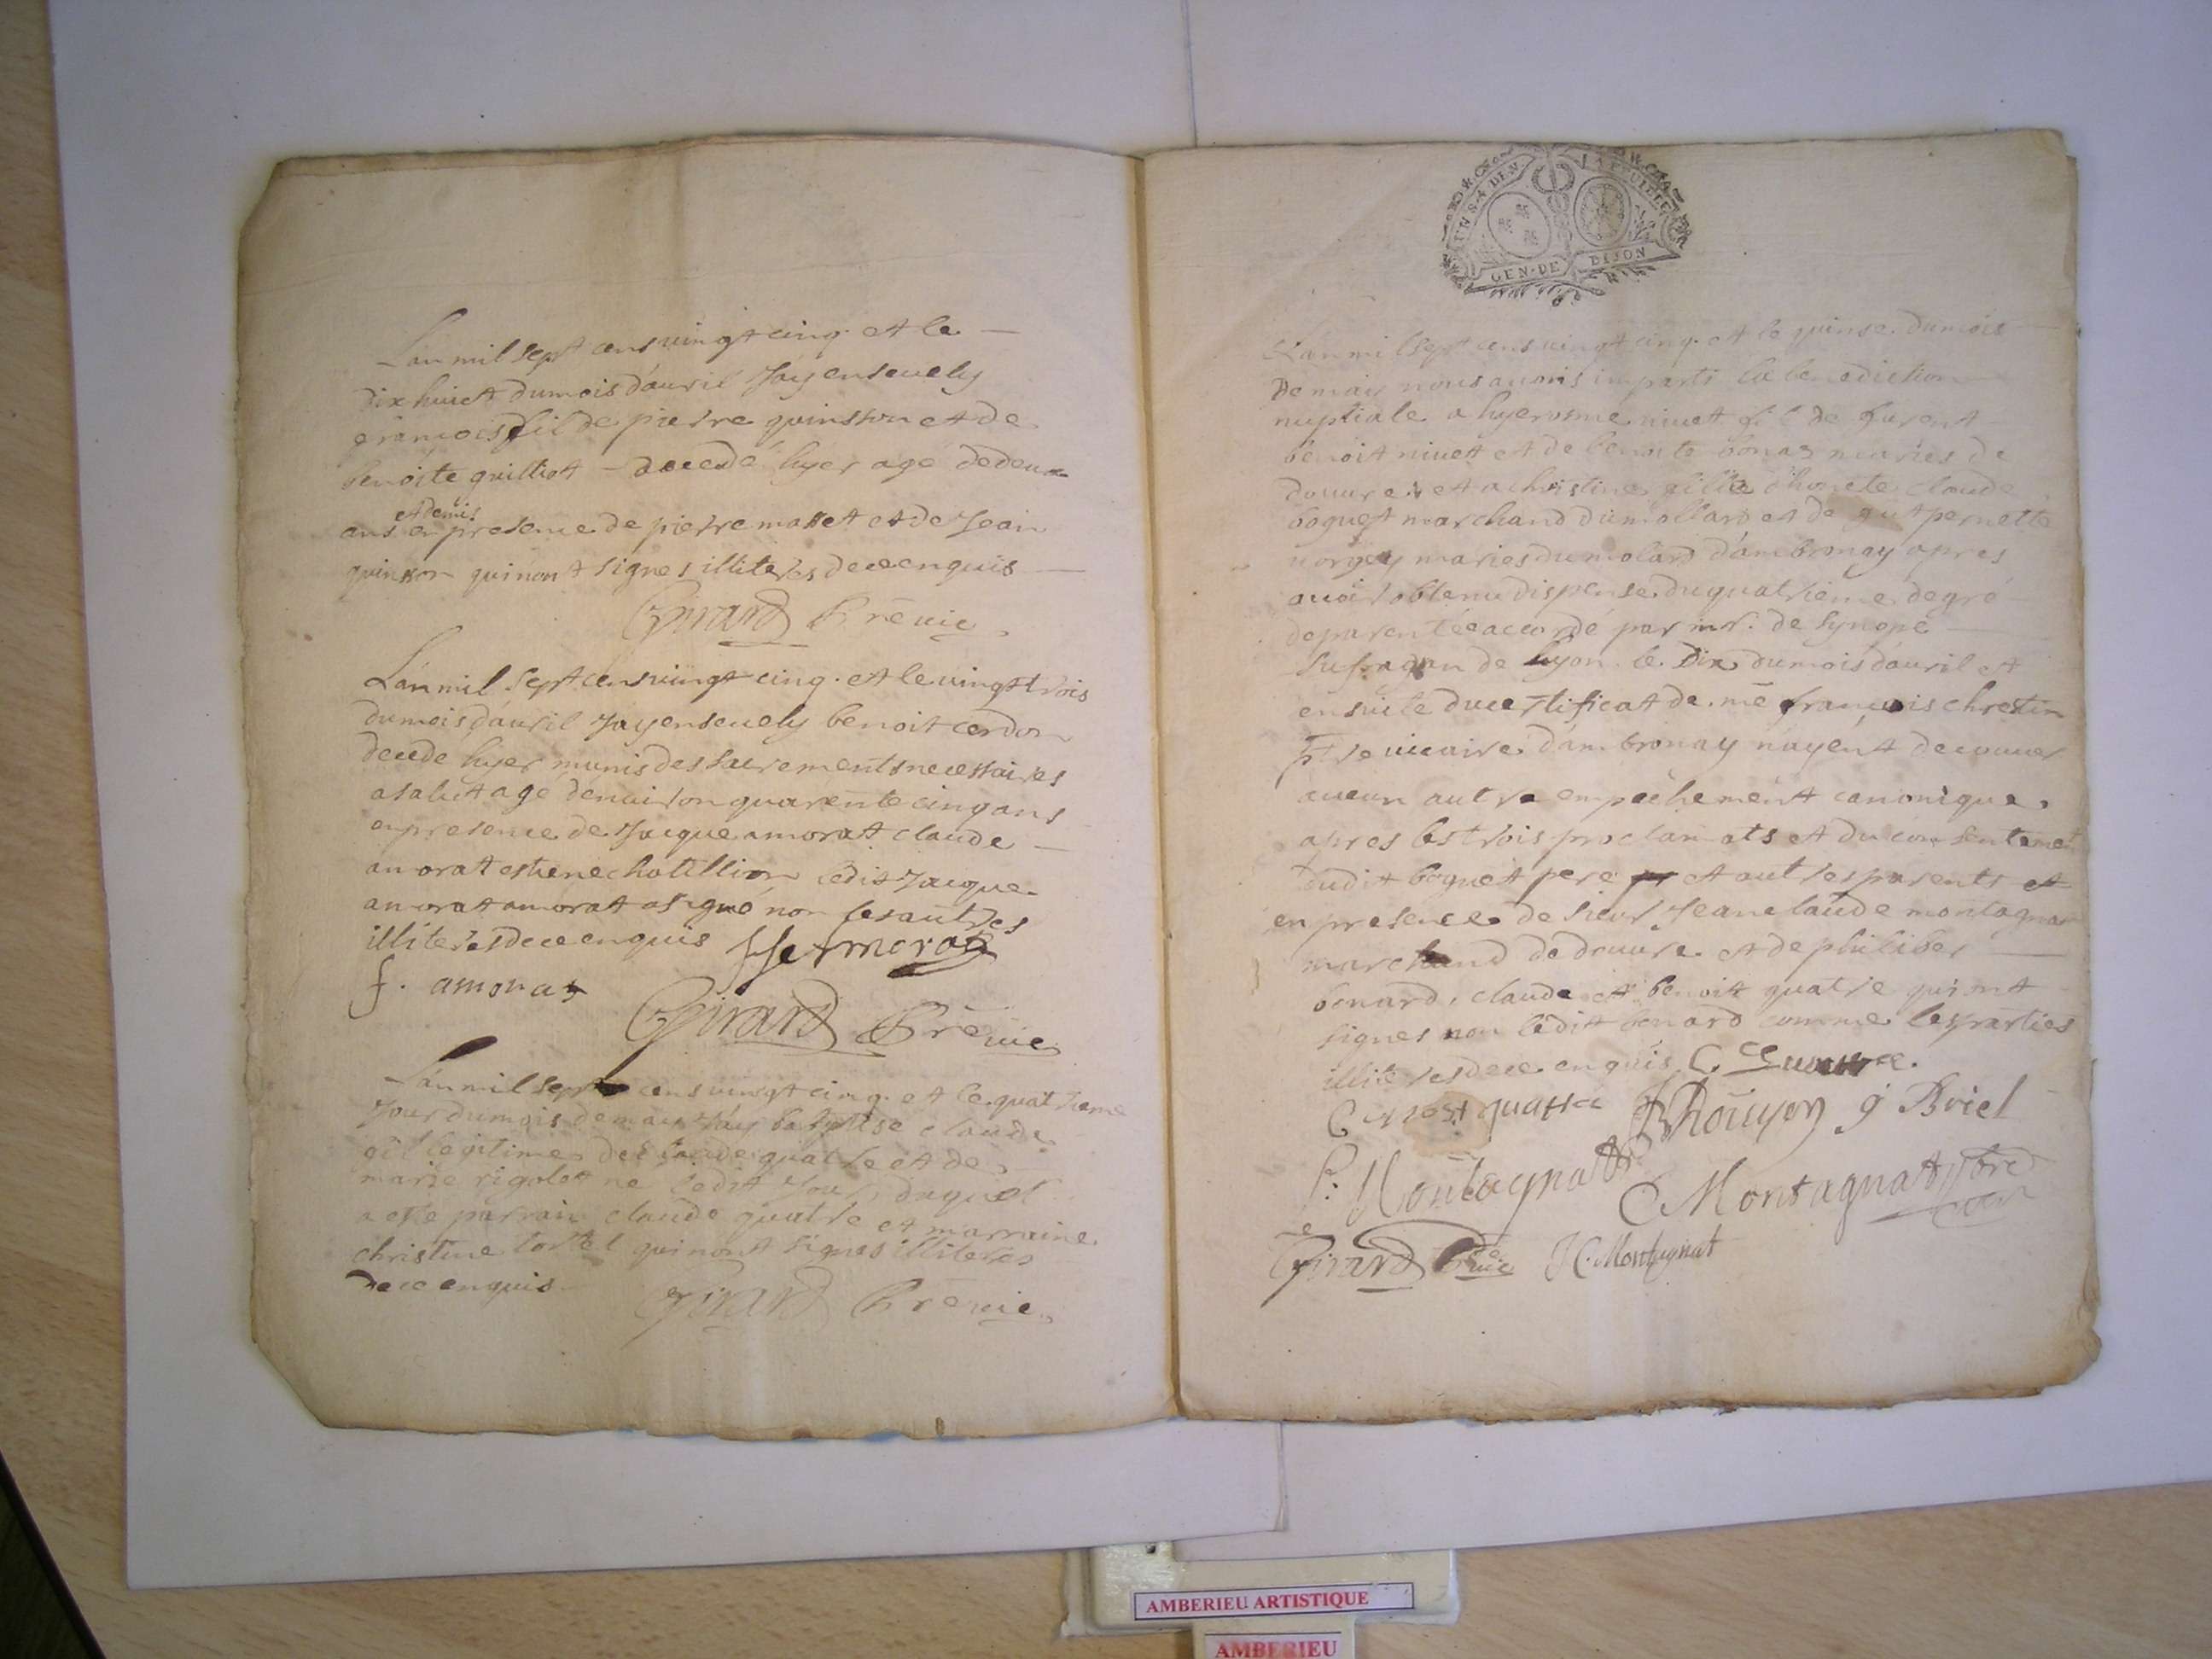 L'an mil sept cens vingt cinq et le
dix huict du mois d'avril j'ay ensevely
françois fil de pierre quinson et de
benoite guilliot decedé hyer agé de deux
et demis
ans en presence de pierre masset et de Jean
quinson qui n'ont signes illiteres de ce enquis
Girard Previc
L'an mil sept cens vingt cinq et le vingt trois
du mois d'avril j'ay ensevely benoit cerdon
decede hyer munis des sacrements necessaires
a salut agé d'environ quarente cinq ans
en presence de Jacque amorat claude
amorat estiene chatillion ledit Jacque
amorat amorat a signé non les autres
illiteres de ce enquis
f. amorat
Girard Previc
L'an mil sept cens vingt cinq et le quatrieme
jour du mois de may j'ay baptise claude
fil legitime de claude quatre et de
marie rigolet né ledit jour duquel
a esté parrain claude quatre et marraine
christine tortel qui n'ont signes illiteres
de ce enquis
Girard Previc
GEN·DE DIJON
L'an mil sept cens vingt cinq et le quinse du mois
de may nous avons imparti la benediction
nuptiale a hyerosme nivet fil de
benoit nivet et de benoite bonaz maries de
douvre et a christine fille d'honete claude
boguet marchand du mollard et de pernette
maries du molard d'ambronay apres
avoir obtenu dispense du quatrieme degré
de parentée accordé par mr. de synope
sufragan de lyon le dix du mois d'avril et
ensuite du certificat de me françois chrestin
ptre vicaire d'ambronay n'ayent decouver
aucun autre empechement canonique
apres les trois proclamats et du consentement
dudit boguet pere et autres parents et
en presence de sieur Jean claude montagnat
marchand de douvre et de philiber
benard, claude et benoit quatre qui ont
signes non ledit benard comme les parties
illiteres de ce enquis
quattre g Briel
P. Montagnat C Montagnat ptre
curé
Girard Previc J C. Montagnat
AMBERIEU ARTISTIQUE
AMBERIEU